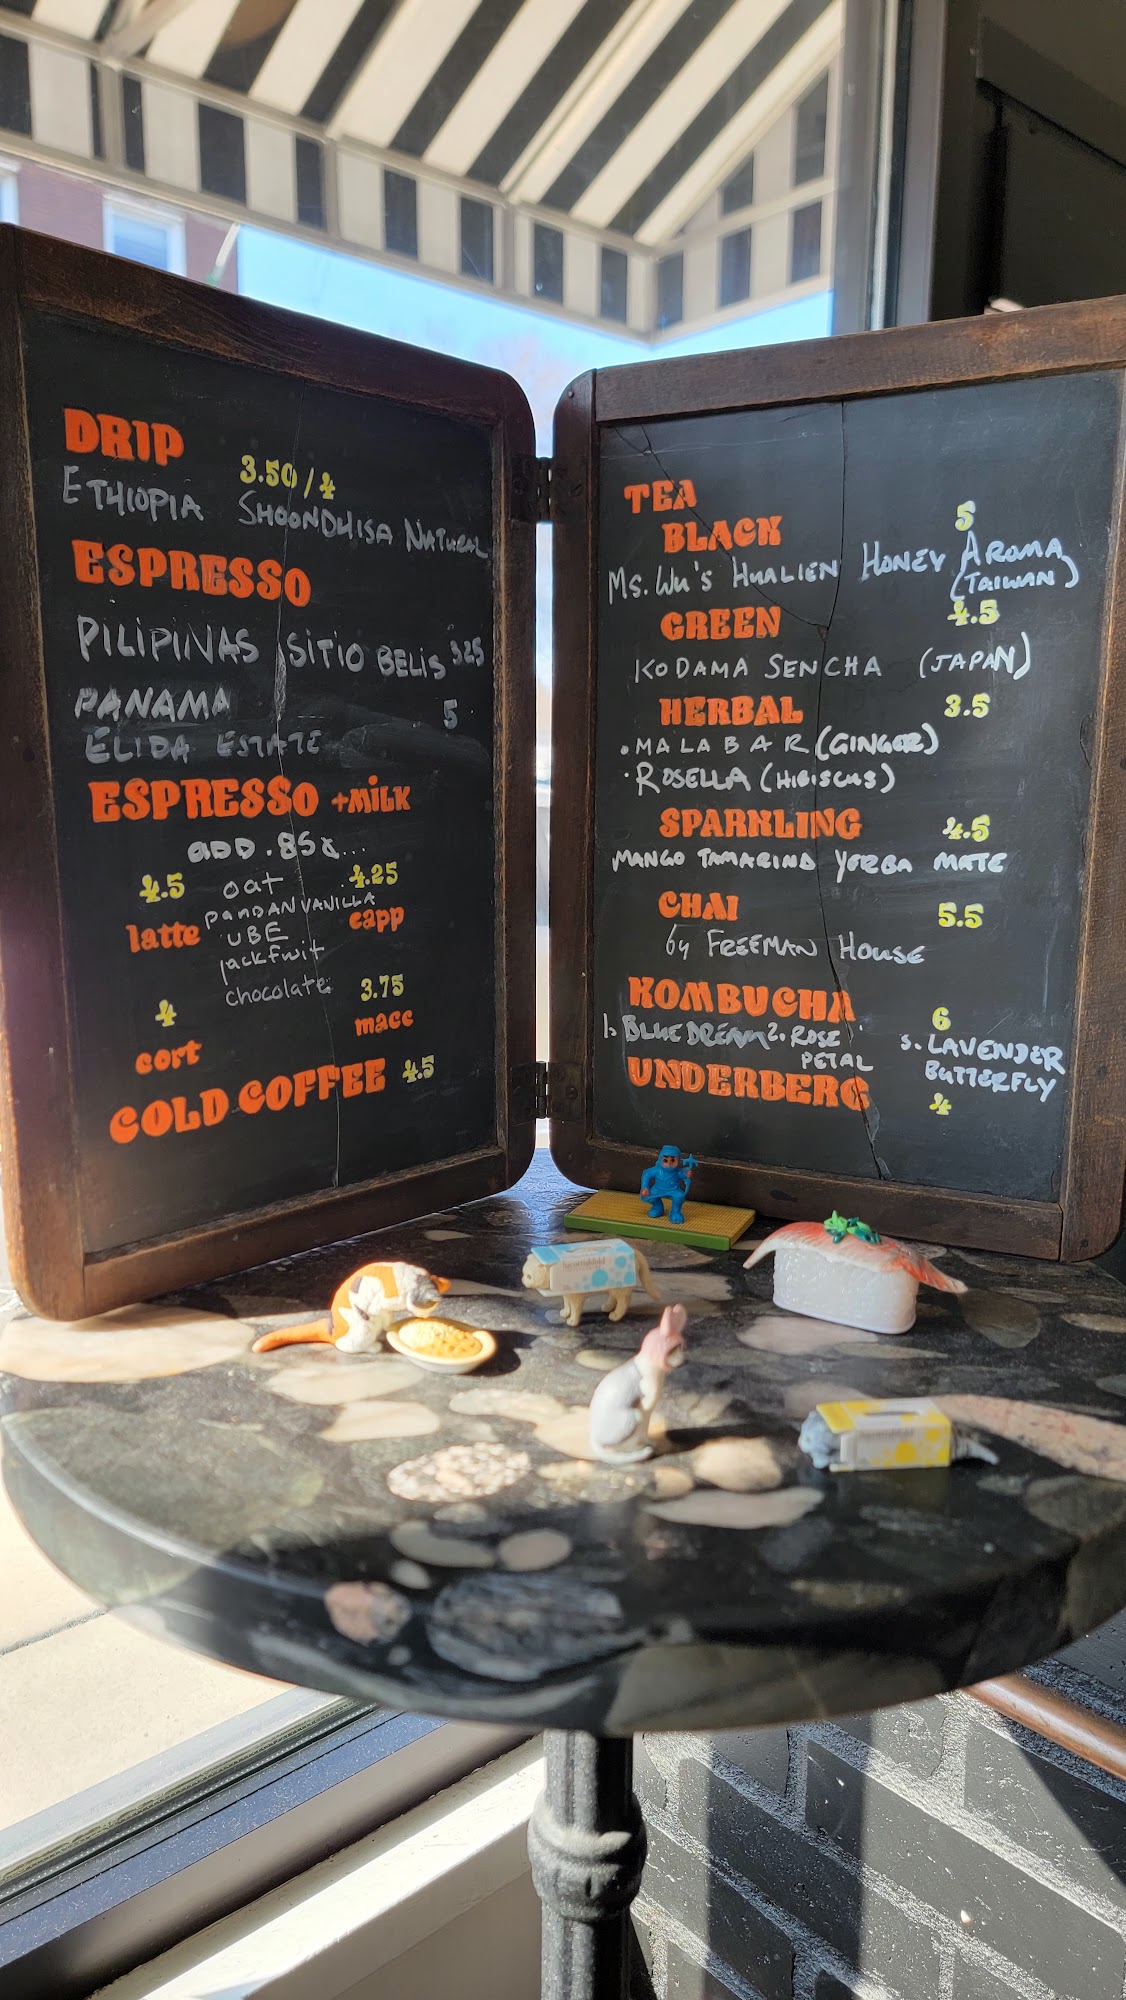 DRIP
3.50/4
ETHIOPIA SHOONDHISA NATURAL
ESPRESSO
PILIPINAS SITIO BELIS 325
PANAMA 5
ELIDA ESTATE
ESPRESSO +MiLK
ADD .85x...
4.5 oat 4.25
PANDAN VANILLA
latte UBE capp
jackfruit
chocolate 3.75
4 macc
cort
COLD COFFEE 4.5
TEA
BLACK 5
Ms. Wu's HUALIEN HONEY AROMA
(TAIWAN)
GREEN 4.5
KODAMA SENCHA (JAPAN)
HERBAL 3.5
• MALABAR (GINGER)
• ROSELLA (HIBISCUS)
SPARKLING 4.5
MANGO TAMARIND YERBA MATE
CHAI 5.5
by FREEMAN HOUSE
KOMBUCHA 6
1. BLUE DREAM 2. ROSE PETAL 3. LAVENDER BUTTERFLY
UNDERBERG 4